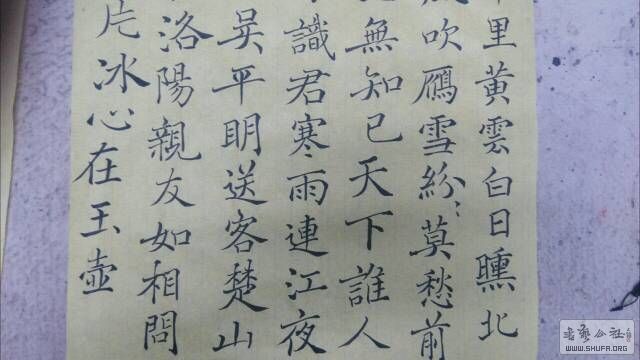 里黄雲白日曛北
吹鴈雪紛〻莫愁前
無知己天下誰人
識君寒雨連江夜
吴平明送客楚山
洛陽親友如相問
片冰心在玉壺
书艺公社
WWW.SHUFA.ORG